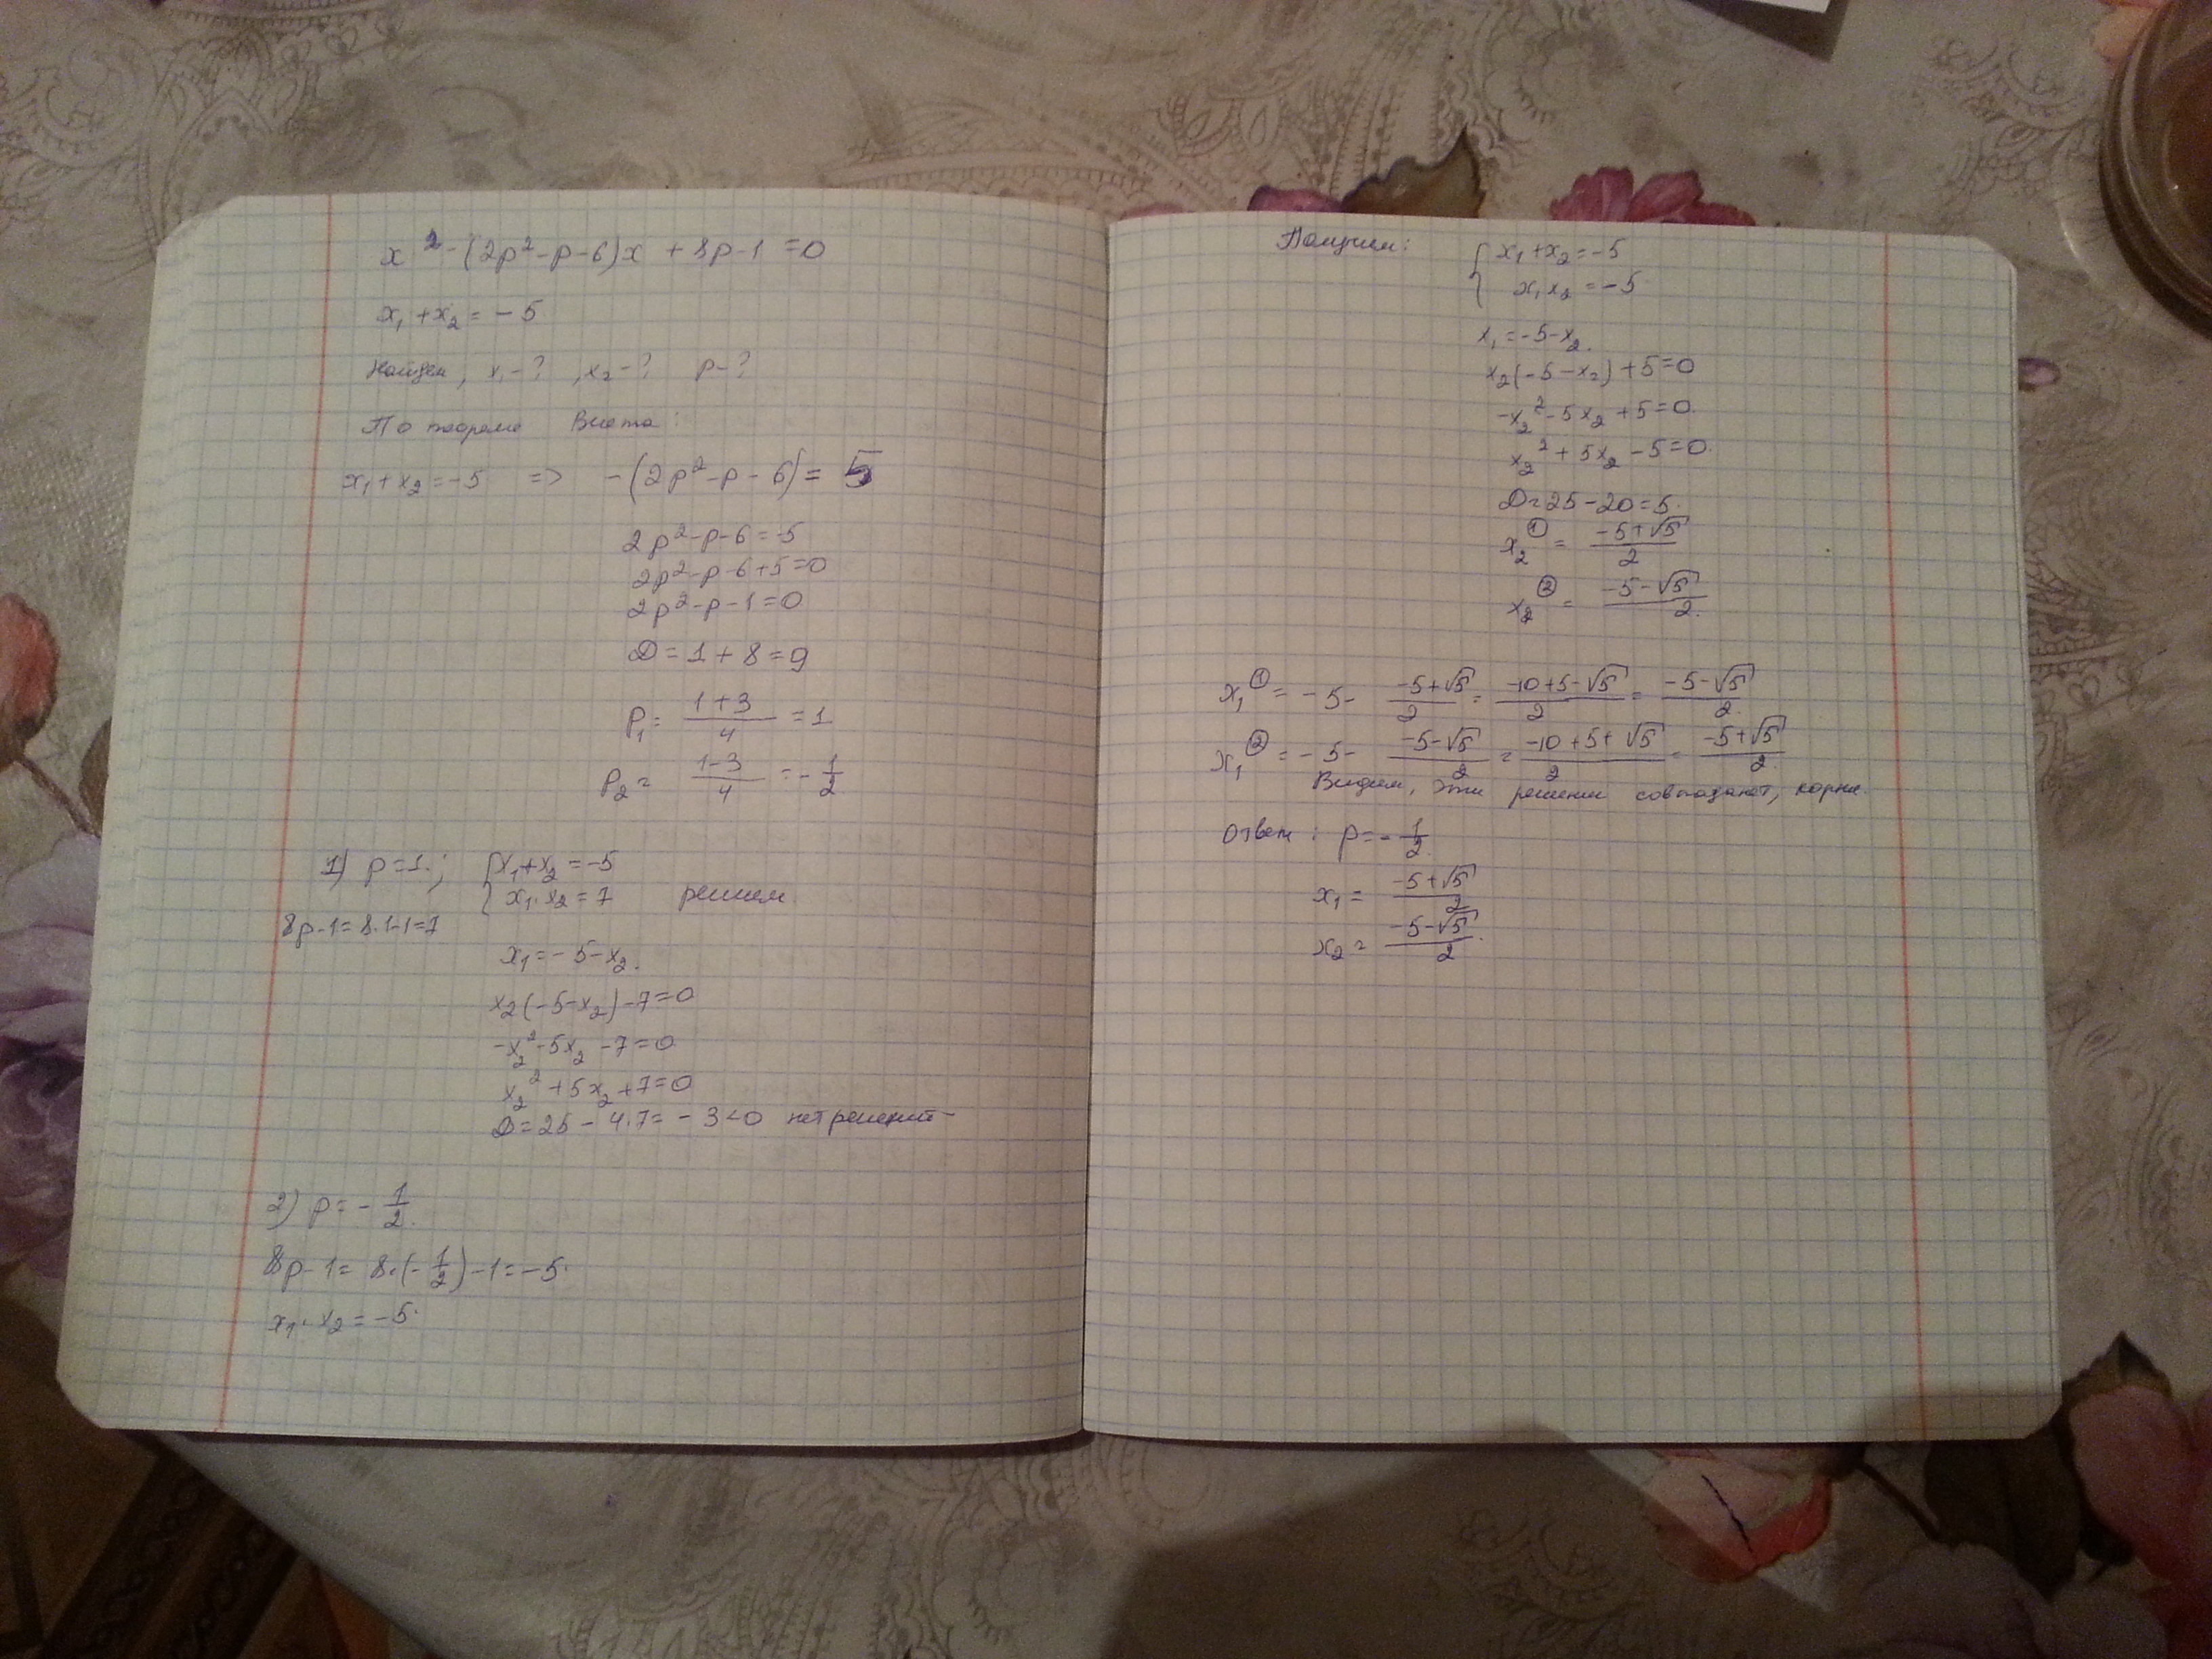 x² - (2p² - p - 6)x + 8p - 1 = 0
x₁ + x₂ = - 5
Найдем, x₁ - ? , x₂ - ? p - ?
По теореме Виета:
x₁ + x₂ = -5 => - (2p² - p - 6) = 5
2p² - p - 6 = -5
2p² - p - 6 + 5 = 0
2p² - p - 1 = 0
D = 1 + 8 = 9
p₁ = (1+3)/4 = 1
p₂ = (1-3)/4 = - 1/2
1) p = 1.; { x₁ + x₂ = -5
{ x₁ · x₂ = 7 решим
8p - 1 = 8·1 - 1 = 7
x₁ = - 5 - x₂.
x₂(-5 - x₂) - 7 = 0
-x₂² - 5x₂ - 7 = 0
x₂² + 5x₂ + 7 = 0
D = 25 - 4·7 = - 3 < 0 нет решений
2) p = - 1/2.
8p - 1 = 8·(- 1/2) - 1 = -5.
x₁ · x₂ = -5.
Получим: { x₁ + x₂ = -5
{ x₁ x₂ = -5
x₁ = -5 - x₂.
x₂(-5 - x₂) + 5 = 0
-x₂² - 5x₂ + 5 = 0.
x₂² + 5x₂ - 5 = 0.
D = 25 - 20 = 5.
x₂① = (-5+√5)/2
x₂② = (-5-√5)/2.
x₁① = - 5 - (-5+√5)/2 = (-10+5-√5)/2 = (-5-√5)/2.
x₁② = - 5 - (-5-√5)/2 = (-10+5+√5)/2 = (-5+√5)/2.
Видим, эти решения совпадают, корни.
Ответ: p = - 1/2.
x₁ = (-5+√5)/2
x₂ = (-5-√5)/2.